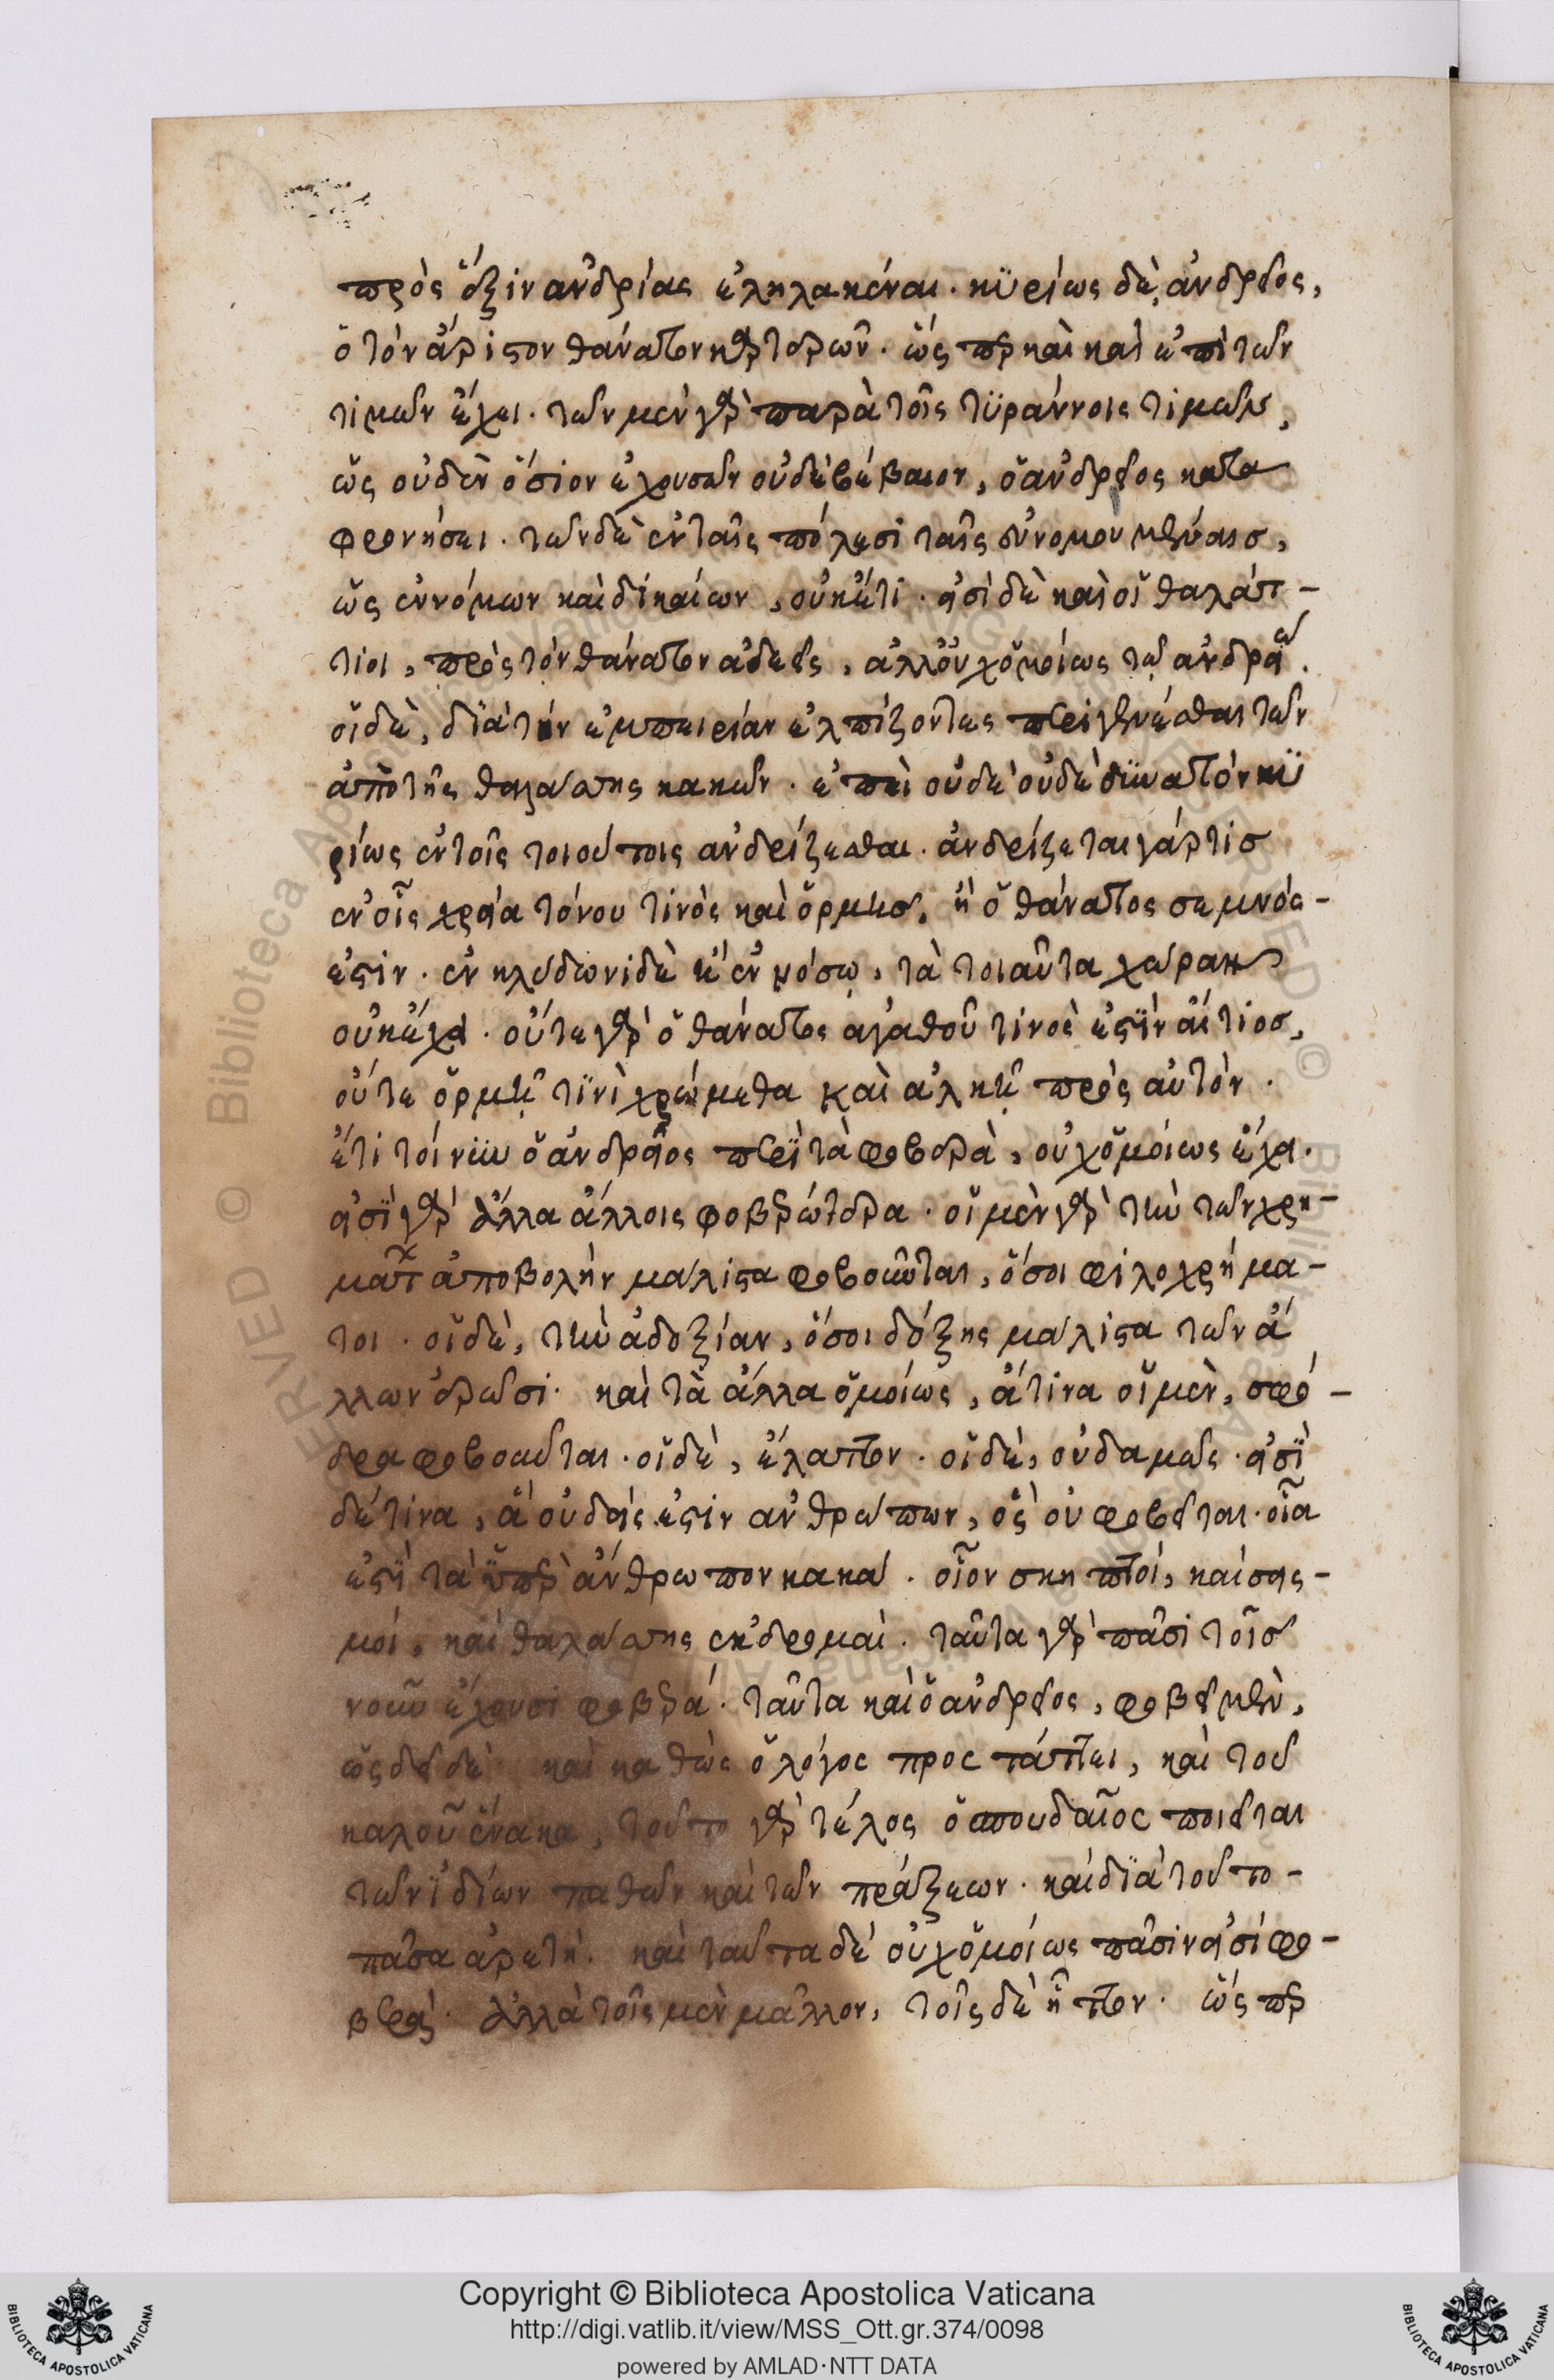 πρὸς ἕξιν ἀνδρίας ἐληλακέναι. κυρίως δὲ, ἀνδρεῖος,
ὁ τὸν ἄριστον θάνατον καρτερῶν. ὥς περ καὶ καὶ ἐπὶ τῶν
τιμῶν ἔχει. τῶν μὲν γὰρ παρὰ τοῖς τυράννοις τιμῶν,
ὡς οὐδὲν ὅσιον ἐχουσῶν οὐδὲ βέβαιον, ὁ ἀνδρεῖος κατα
φρονήσει. τῶν δὲ ἐν ταῖς πόλεσι ταῖς εὐνομουμέναισ,
ὡς ἐννόμων καὶ δικαίων, οὐκέτι. εἰσὶ δὲ καὶ οἱ θαλάτ-
τιοι, πρὸς τὸν θάνατον ἀδεεῖς, ἀλλ' οὐχ ὁμοίως τῷ ἀνδρείῳ.
οἱ δὲ, διὰ τὴν ἐμπειρίαν ἐλπίζοντες περιγενέσθαι τῶν
ἀπὸ τῆς θαλάσσης κακῶν. ἐπεὶ οὐδὲ οὐδὲ δυνατόν κυ
ρίως ἐν τοῖς τοιούτοις ἀνδρίζεσθαι. ἀνδρίζεται γάρ τισ
ἐν οἷς χρεία τόνου τινὸς καὶ ὁρμῆσ, ἢ ὁ θάνατος σεμνός-
ἐστιν. ἐν κλύδωνι δὲ ἢ ἐν νόσῳ, τὰ τοιαῦτα χώραν
οὐκ ἔχει. οὔτε γὰρ ὁ θάνατος ἀγαθοῦ τινος ἐστὶν αἴτιοσ,
οὔτε ὁρμῇ τινὶ χρώμεθα καὶ ἀλκῇ πρὸς αὐτόν.
ἔτι τοίνυν ὁ ἀνδρεῖος περὶ τὰ φοβερὰ, οὐχ ὁμοίως ἔχει.
εἰσὶ γὰρ ἄλλα ἄλλοις φοβερώτερα. οἱ μὲν γὰρ τὴν τῶν χρη-
μάτων ἀποβολήν μάλιστα φοβοῦνται, ὅσοι φιλοχρήμα-
τοι. οἱ δὲ, τὴν ἀδοξίαν, ὅσοι δόξης μάλιστα τῶν ἄ
λλων ἐρῶσι. καὶ τὰ ἄλλα ὁμοίως, ἅτινα οἱ μὲν, σφό-
δρα φοβοῦνται. οἱ δὲ, ἔλαττον. οἱ δὲ, οὐδαμῶς. εἰσὶ
δέ τινα, ἃ οὐδείς ἐστιν ἀνθρώπων, ὃς οὐ φοβεῖται. οἷα
ἐστὶ τὰ ὑπὲρ ἄνθρωπον κακά. οἷον σκηπτοί, καὶ σεις-
μοί, καὶ θαλάσσης ἐκδρομαί. ταῦτα γὰρ πᾶσι τοῖσ
νοῦν ἔχουσι φοβερά. ταῦτα καὶ ὁ ἀνδρεῖος, φοβεῖ μὲν,
ὡς δεῖ δὲ καὶ καθὼς ὁ λόγος προςτάττει, καὶ τοῦ
καλοῦ ἕνεκα, τοῦτο γὰρ τέλος ὁ σπουδαῖος ποιεῖται
τῶν ἰδίων παθῶν καὶ τῶν πράξεων. καὶ διὰ τοῦτο-
πᾶσα ἀρετή. καὶ ταῦτα δὲ οὐχ ὁμοίως πᾶσιν εἰσί φο-
βερά. ἀλλὰ τοῖς μὲν μᾶλλον, τοῖς δὲ ἧττον. ὥς περ
Copyright © Biblioteca Apostolica Vaticana
http://digi.vatlib.it/view/MSS_Ott.gr.374/0098
powered by AMLAD·NTT DATA
BIBLIOTECA APOSTOLICA VATICANA
BIBLIOTECA APOSTOLICA VATICANA